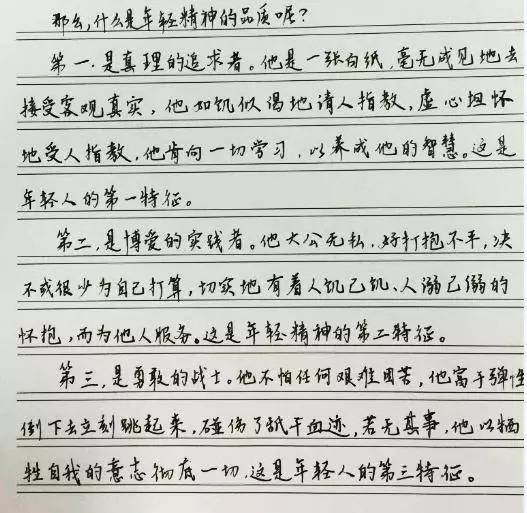 那么,什么是年轻精神的品质呢?
第一.是真理的追求者。他是一张白纸,毫无成见地去
接受客观真实,他如饥似渴地请人指教,虚心坦怀
地受人指教,他肯向一切学习,以养成他的智慧。这是
年轻人的第一特征。
第二,是博爱的实践者。他大公无私,好打抱不平,决
不或很少为自己打算,切实地有着人饥己饥、人溺己溺的
怀抱,而为他人服务。这是年轻精神的第二特征。
第三,是勇敢的战士。他不怕任何艰难困苦,他富于弹性
倒下去立刻跳起来,碰伤了舐干血迹,若无其事,他以牺
牲自我的意志彻底一切,这是年轻人的第三特征。